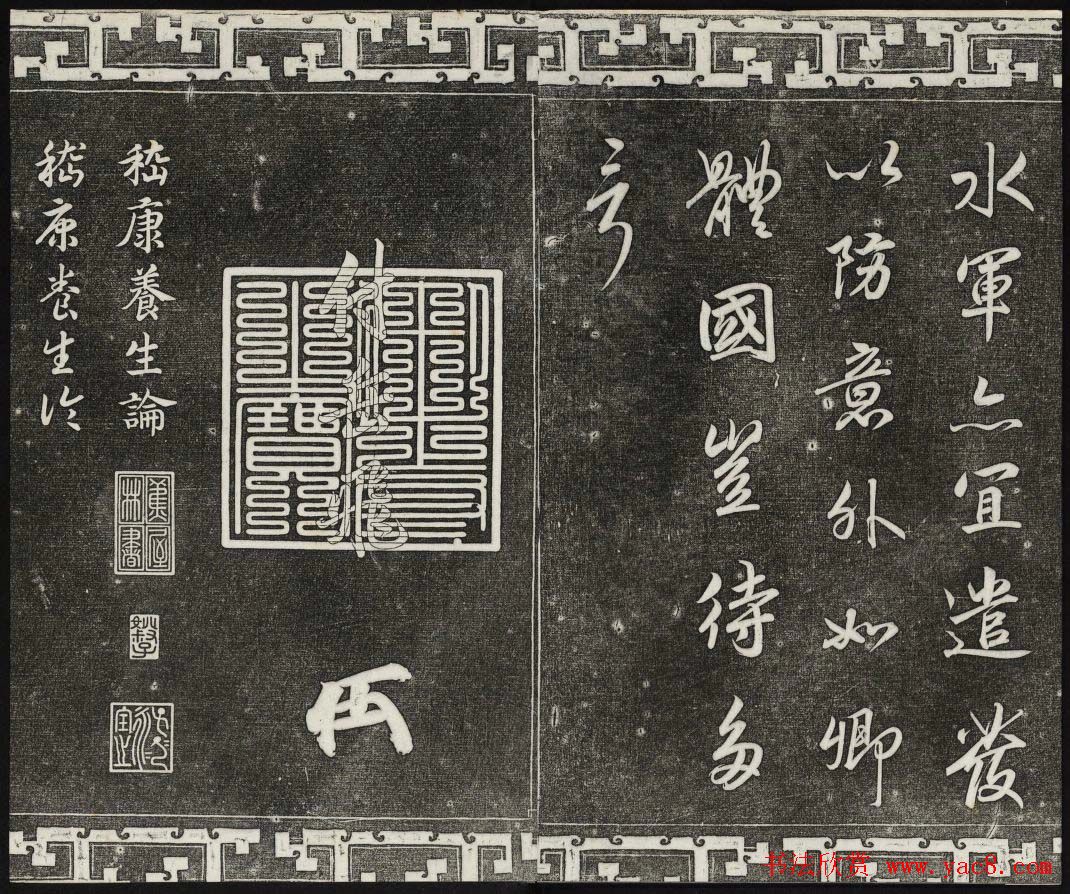 水軍亦宜遣發
以防意外如卿
體國豈待多
言
付岳飛
嵇康養生論
嵇康養生論
书法欣赏 www.yac8.com